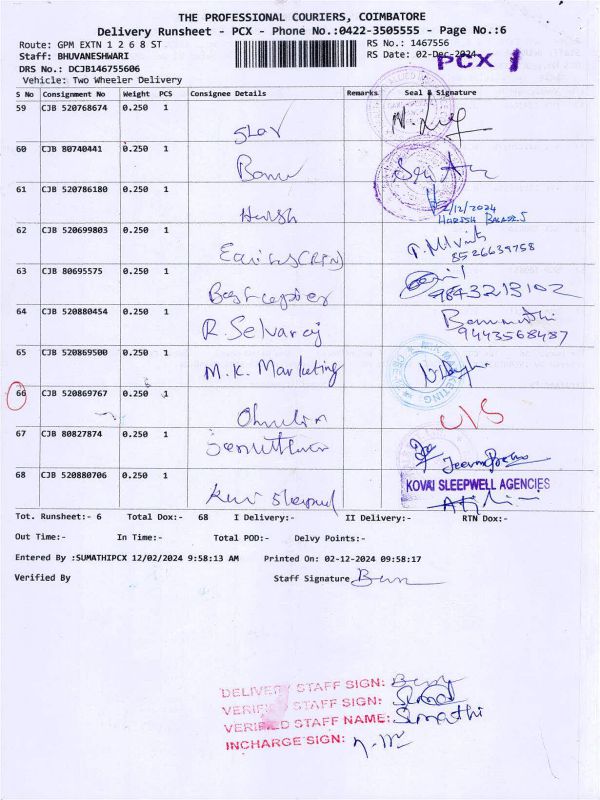 THE PROFESSIONAL COURIERS, COIMBATORE
Delivery Runsheet - PCX - Phone No.:0422-3505555 - Page No.:6
Route: GPM EXTN 1 2 6 8 ST
RS No.: 1467556
Staff: BHUVANESHWARI
RS Date: 02-Dec-2024
PCX 1
DRS No.: DCJB146755606
Vehicle: Two Wheeler Delivery
S No Consignment No Weight PCS Consignee Details Remarks Seal & Signature
59 CJB 520768674 0.250 1
Star
60 CJB 80740441 0.250 1
61 CJB 520786180 0.250 1
Harish
2/12/2024
62 CJB 520699803 0.250 1
8526639758
63 CJB 80695575 0.250 1
9843213102
64 CJB 520880454 0.250 1
R. Selvaraj
9443568487
65 CJB 520869500 0.250 1
M.K. Marketing
66 CJB 520869767 0.250 1
67 CJB 80827874 0.250 1
68 CJB 520880706 0.250 1
KOVAI SLEEPWELL AGENCIES
Tot. Runsheet:- 6 Total Dox:- 68 I Delivery:- II Delivery:- RTN Dox:-
Out Time:- In Time:- Total POD:- Delvy Points:-
Entered By :SUMATHIPCX 12/02/2024 9:58:13 AM Printed On: 02-12-2024 09:58:17
Verified By Staff Signature
DELIVERY STAFF SIGN:
VERIFIED STAFF SIGN:
VERIFIED STAFF NAME: Sumathi
INCHARGE SIGN: